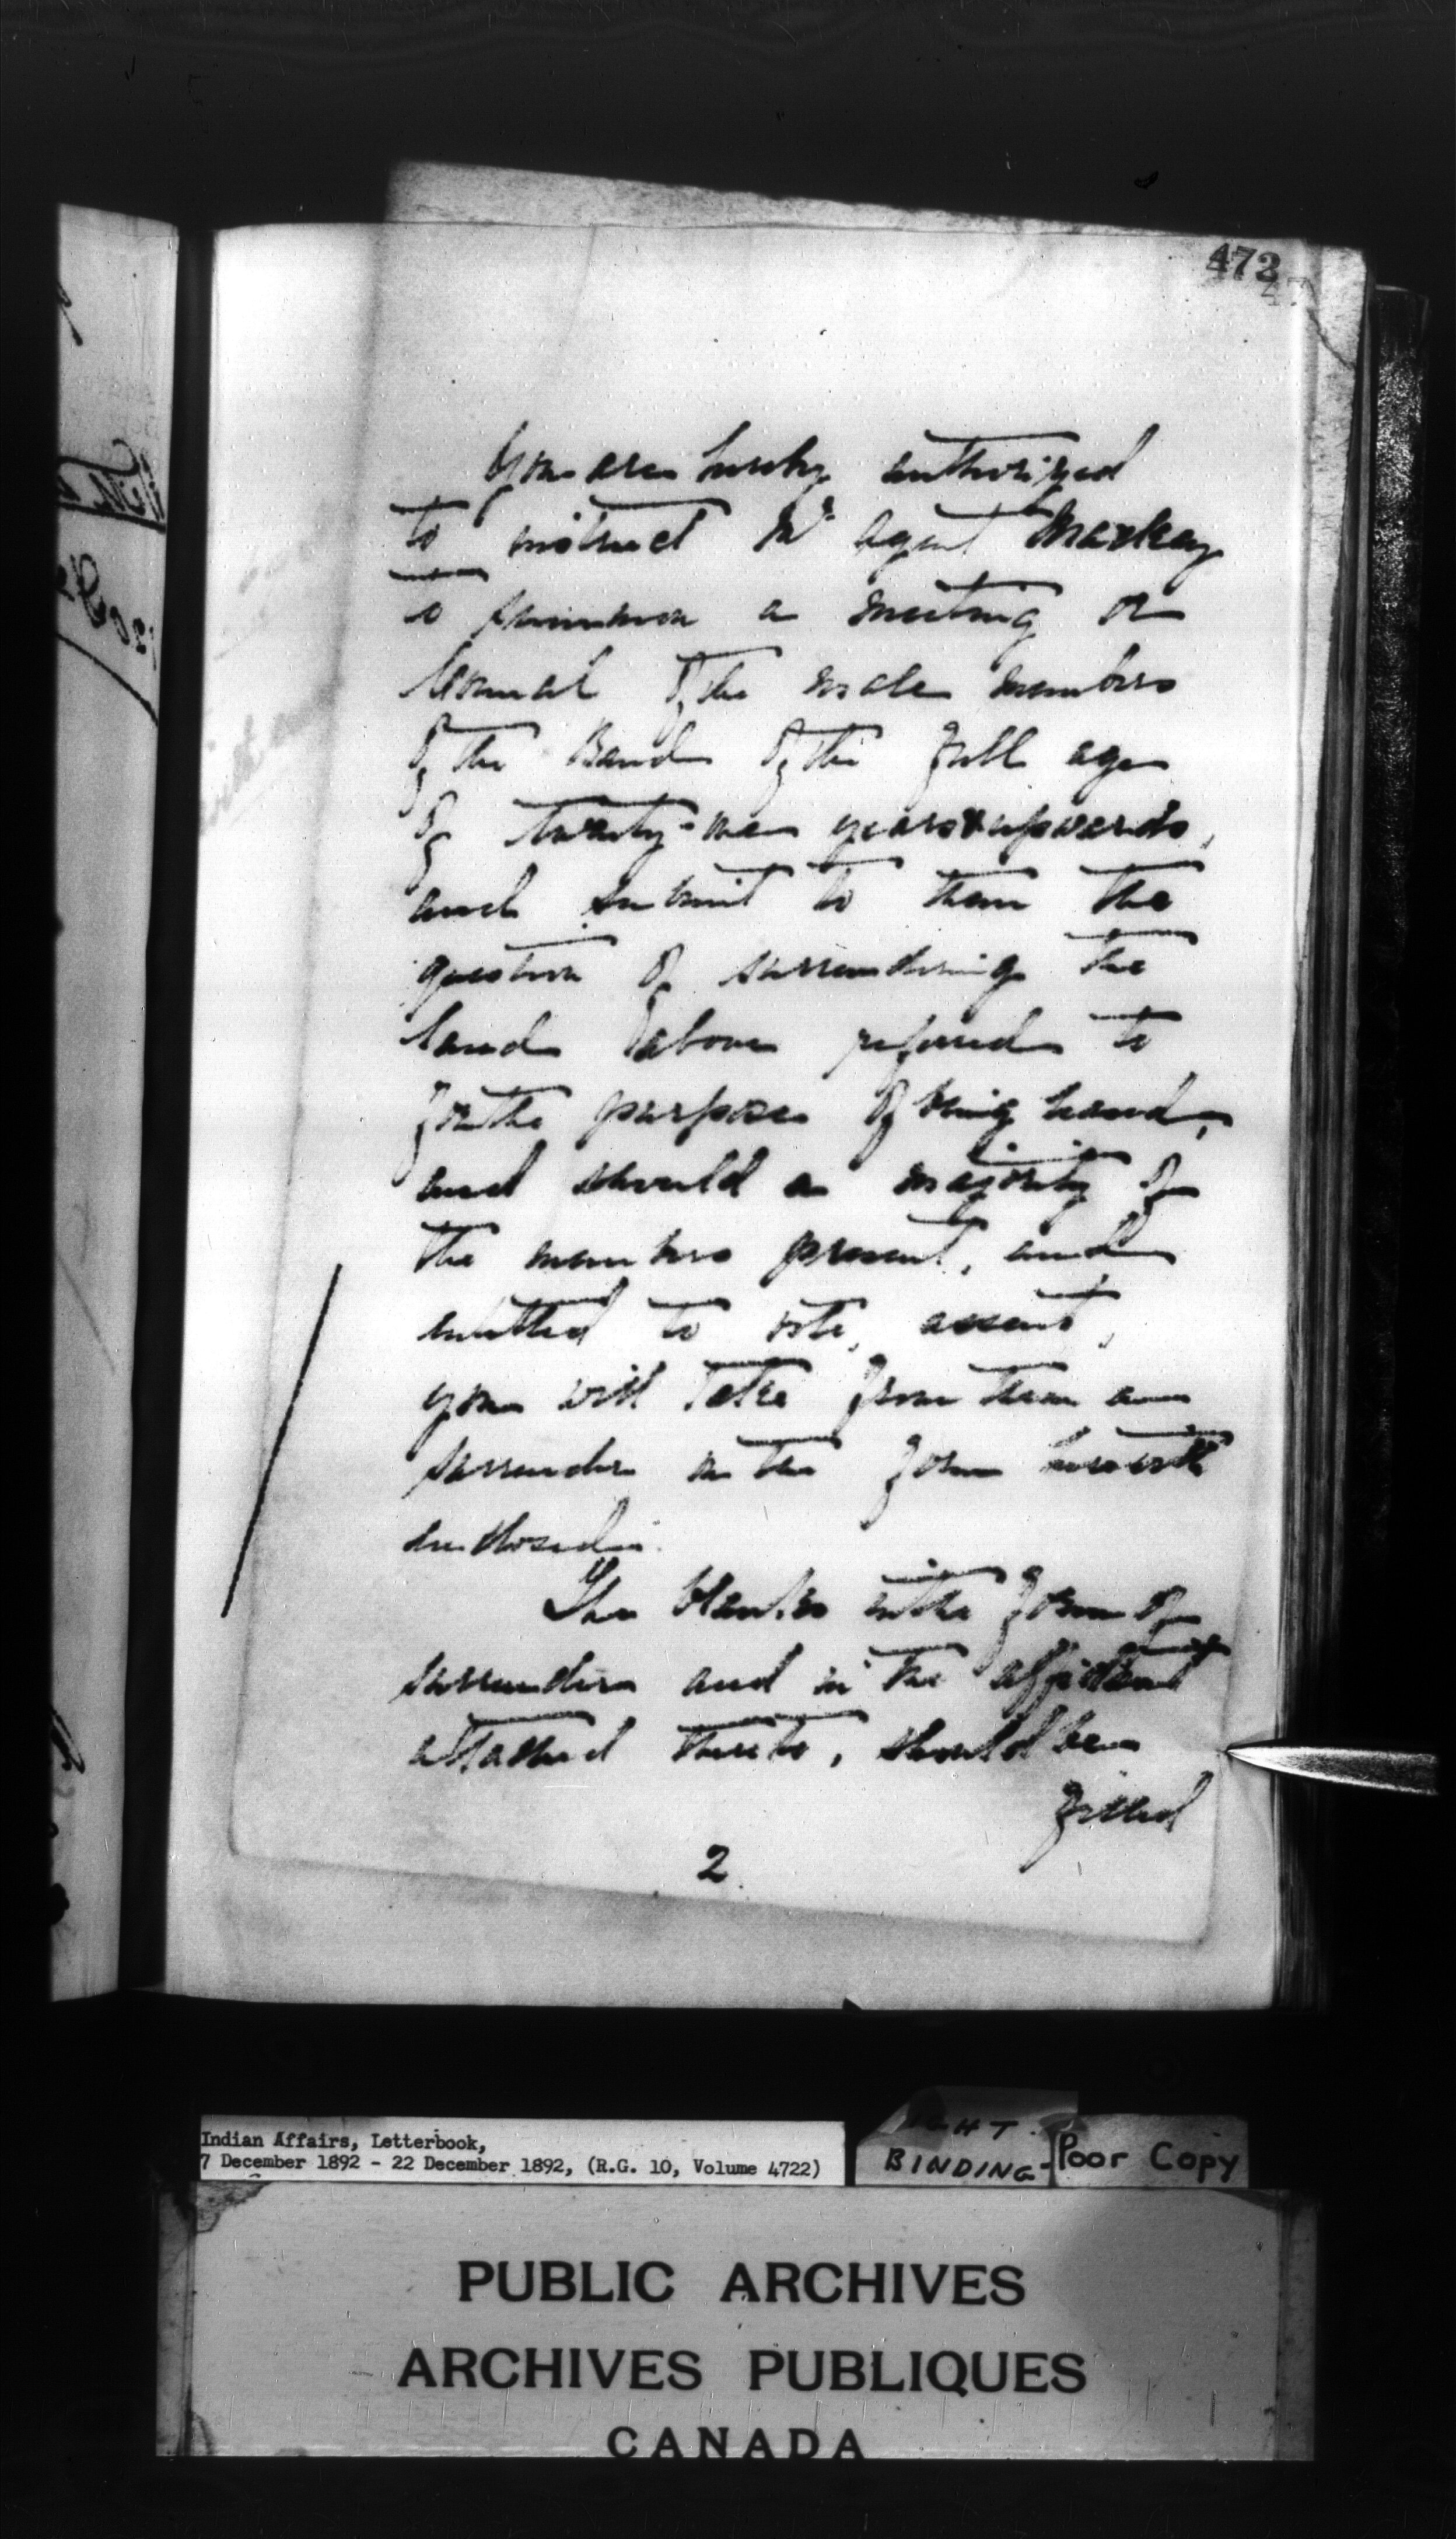 472
You are hereby authorized
to instruct Mr Agent Mackay
to summon a meeting or
Council of the male members
of the Band of the full age
of twenty-one years & upwards,
and submit to them the
question of surrendering the
land above referred to
for the purpose of being leased,
and should a majority of
the members present, and
entitled to vote, assent,
you will take from them a
surrender in the form herewith
enclosed.
The blanks in the form of
surrender and in the affidavit
attached thereto, should be
filled
2
Indian Affairs, Letterbook,
7 December 1892 - 22 December 1892, (R.G. 10, Volume 4722)
BINDING
Poor Copy
PUBLIC ARCHIVES
ARCHIVES PUBLIQUES
CANADA